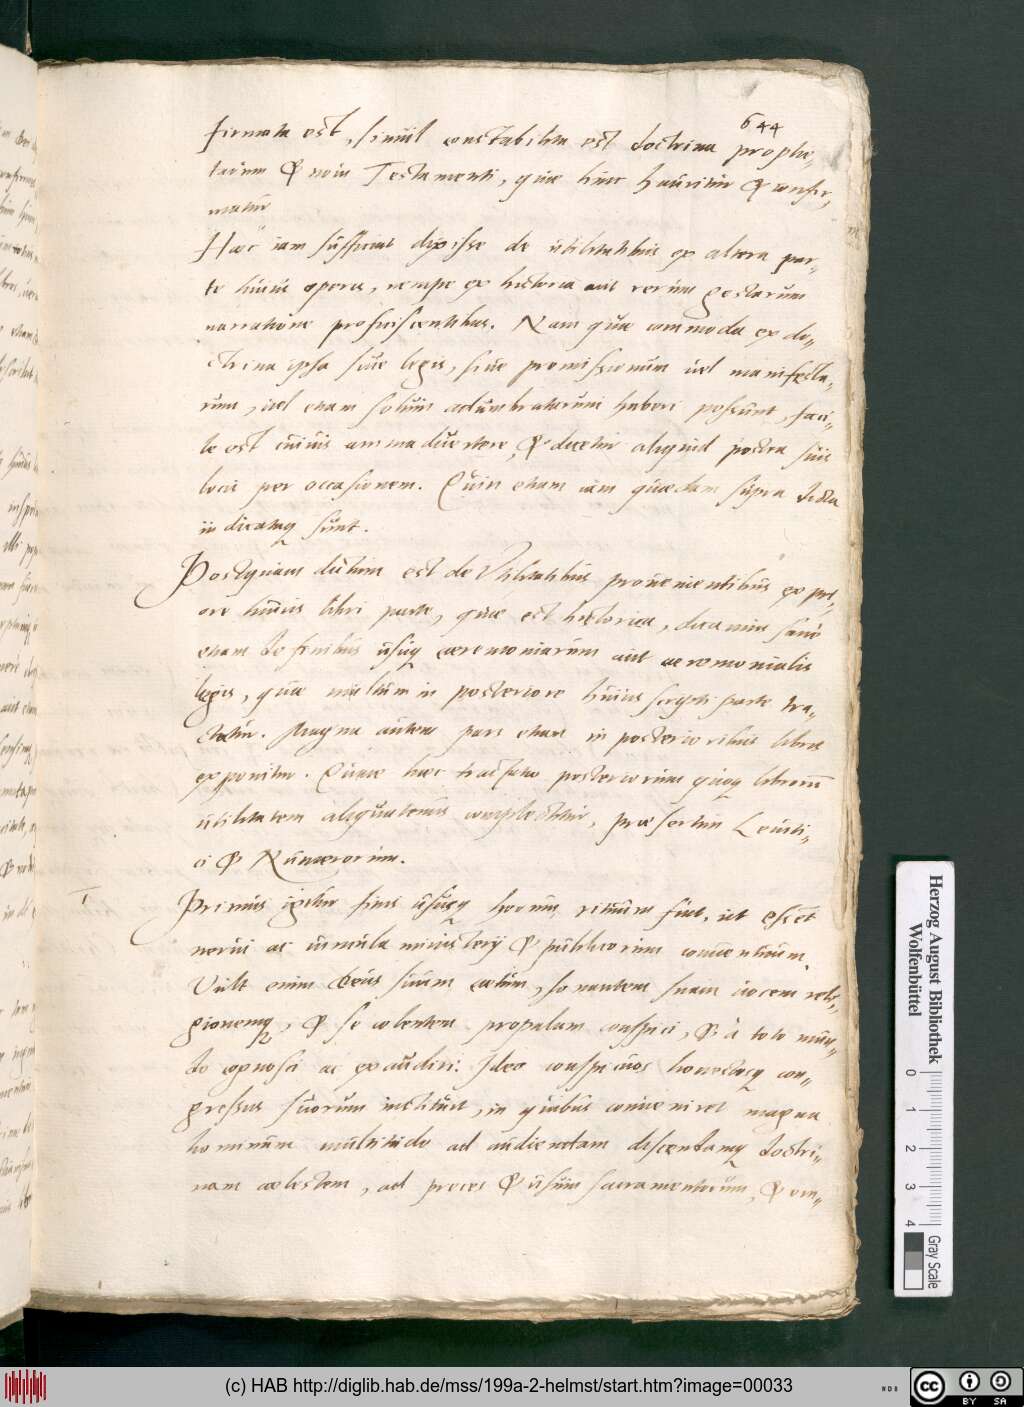 644
firmata est, simul constabilita est doctrina prophe„
tarum & noui Testamenti, quae hinc hauritur & confir„
matur
Haec iam sufficiat dixisse de utilitatibus ex altera par„
te huius operis, nempe ex historia aut rerum gestarum
narratione proficiscentibus. Nam quae commoda ex do„
ctrina ipsa siue legis, siue promissionum uel manifesta„
rum, uel etiam solum adumbratarum haberi possunt, faci„
le est cuiuis animaduertere, & dicetur aliquid postea suis
locis per occasionem. Quin etiam iam quaedam supra dicta
indicataq sunt.
Postquam dictum est de Utilitatibus prouenientibus ex pri„
ore huius libri parte, quae est historica, dicamus
etiam de finibus usuq ceremoniarum aut ceremonialis
legis, quae multum in posteriore huius scripti parte tra„
ctatur. Magna autem pars etiam in posterioribus libris
exponitur. Quare haec tractatio posteriorum quoq librorum
utilitatem aliquatenus complectitur, praesertim Leuiti„
ci & Numerorum.
I
Primus igitur finis ususq horum rituum fuit, ut essent
nerui ac uincula ministerij & publicorum conuentuum.
Vult enim Deus suum coetum, sonantem suam uocem reli„
gionemq, & se colentem propalam conspici, & à toto mun„
do cognosci ac exaudiri: Ideo conspicuos honestosq con„
gressus suorum instituit, in quibus conueniret magna
hominum multitudo ad audiendam discendamq doctri„
nam coelestem, ad preces & usum sacramentorum, & om„
Herzog August Bibliothek
Wolfenbüttel
0 1 2 3 4
Gray Scale
(c) HAB http://diglib.hab.de/mss/199a-2-helmst/start.htm?image=00033
cc BY SA